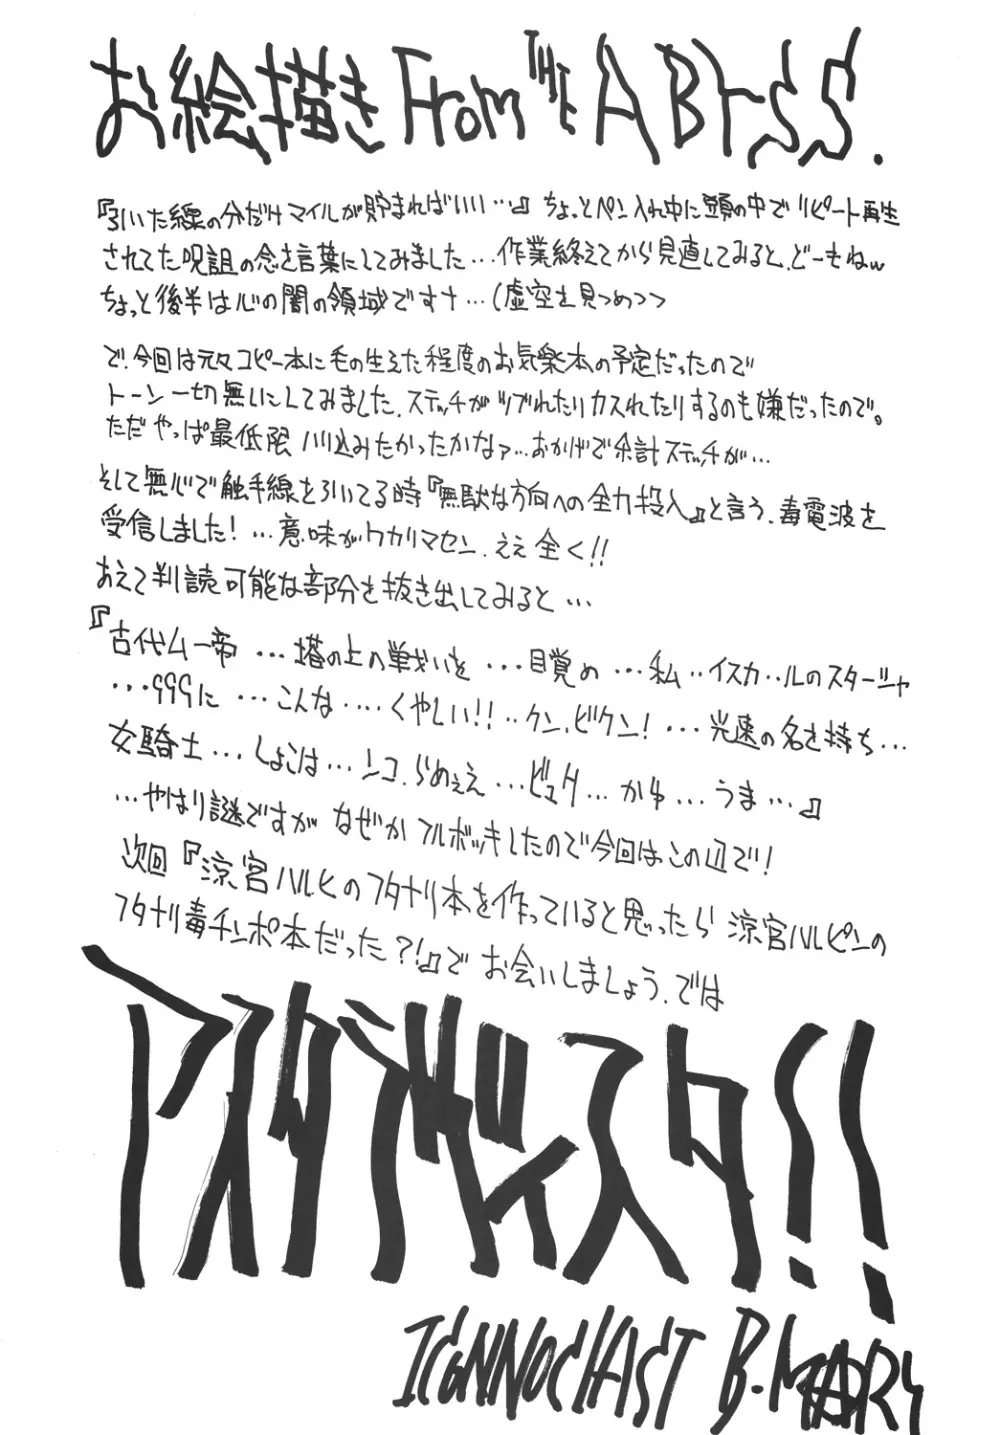 お絵描き From THE ABYSS.
『引いた線の分だけマイルが貯まればいい…』ちょっとペン入れ中に頭の中でリピート再生
されてた呪詛の念を言葉にしてみました…作業終えてから見直してみると、どーもねw
ちょっと後半は心の闇の領域ですナ…(虚空を見つめつつ
で、今回は元々コピー本に毛の生えた程度のお気楽本の予定だったので
トーン一切無しにしてみました、ステッチがツブれたりカスれたりするのも嫌だったので。
ただやっぱ最低限ハリ込みたかったかなァ…おかげで余計ステッチが…
そして無心で触手線を引いてる時『無駄な方向への全力投入』と言う、毒電波を
受信しました!…意味がワカリマセン、ええ全く!!
あえて判読可能な部分を抜き出してみると…
『古代ムー帝…塔の上の戦いを…目覚め…私…イスカ…ルのスタージャ
…999に…こんな…くやしい!!…クン、ビクン!…光速の名を持ち…
女騎士…しょこは…ンコ、らめぇえ…ビュク…かゆ…うま…』
…やはり謎ですがなぜかフルボッキしたので今回はこの辺で!
次回『涼宮ハルヒのフタナリ本を作っていると思ったら涼宮ハルピンの
フタナリ毒チンポ本だった?!』でお会いしましょう、では
アスタラビスタ!!
ICONNOCLAST B-MARY